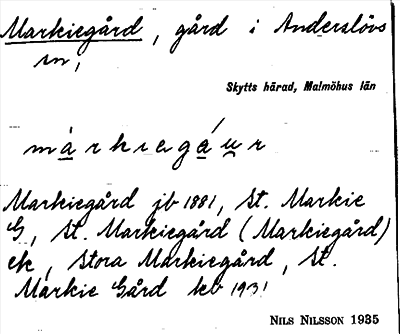 Markiegård, gård i Anderslövs
sn,
Skytts härad, Malmöhus län
márkiegáu̯r
Markiegård jb 1881, St. Markie
G, St. Markiegård (Markiegård)
ek, Stora Markiegård, St.
Markie Gård kb 1931
NILS NILSSON 1935